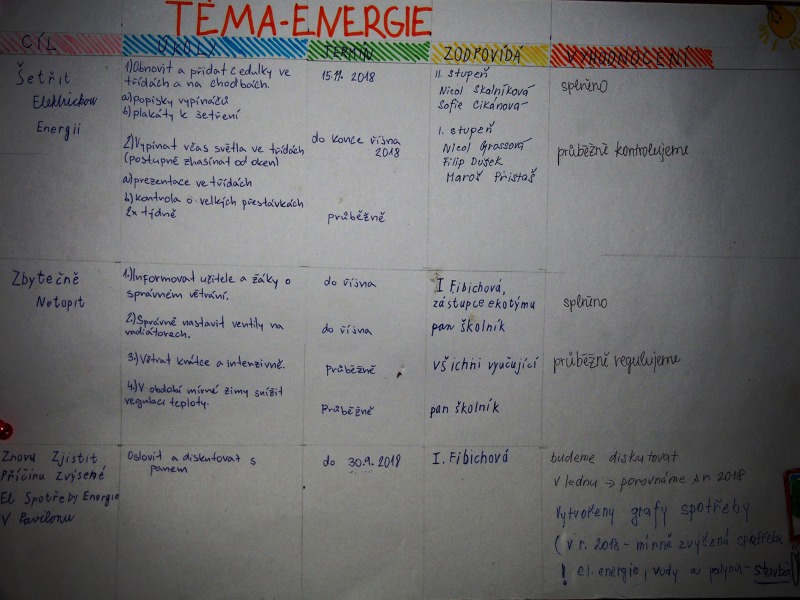 TÉMA-ENERGIE
CÍL
ÚKOLY
TERMÍN
ZODPOVÍDÁ
VYHODNOCENÍ
Šetřit
Elektrickou
Energii
1) Obnovit a přidat cedulky ve
třídách a na chodbách.
a) popisky vypínačů
b) plakáty k šetření
15.11. 2018
II. stupeň
Nicol Skalníková
Sofie Cikánová
splněno
2) Vypínat včas světla ve třídách
(postupně zhasínat od oken)
a) prezentace ve třídách
b) kontrola o velkých přestávkách
2x týdně
do konce října
2018
průběžně
I. stupeň
Nicol Grossová
Filip Dušek
Maroš Přistaš
průběžně kontrolujeme
Zbytečně
Netopit
1.) Informovat učitele a žáky o
správném větrání.
do října
I Fibichová,
zástupce ekotýmu
splněno
2.) Správně nastavit ventily na
radiátorech.
do října
pan školník
3.) Větrat krátce a intenzivně.
průběžně
všichni vyučující
průběžně regulujeme
4.) V období mírné zimy snížit
regulaci teploty.
Průběžně
pan školník
Znovu Zjistit
Příčinu Zvýšené
El Spotřeby Energie
V Pavilonu
Oslovit a diskutovat s
panem
do 30.9. 2018
I. Fibichová
budeme diskutovat
V lednu → porovnáme 2018
Vytvořeny grafy spotřeby
(v r. 2018 - mírně zvýšená spotřeba
! el. energie, vody a plynu - stavba